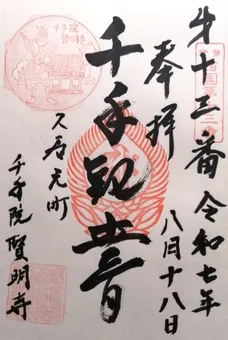 才十三番 令和七年
八月十八日
奉拝
千手観世音
久居元町
千手院 賢明寺
千手院